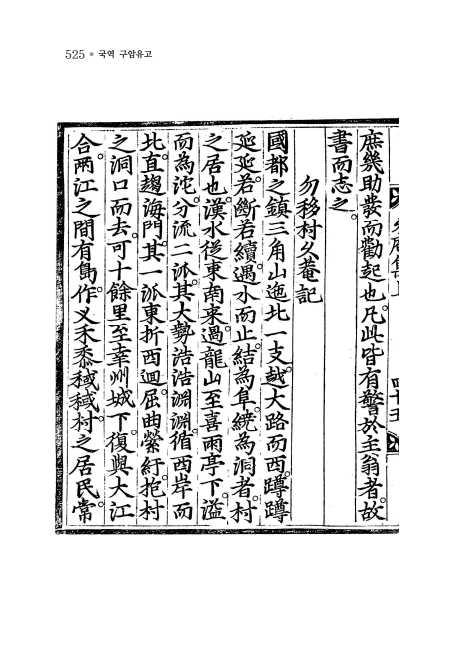 525 ● 국역 구암유고
庶幾助發而勸起也。凡此皆有警於主翁者。故
書而志之。
勿移村久菴記
國都之鎮三角山迤北一支。越大路而西蹲蹲
延延。若斷若續。遇水而止。結為阜。繞為洞者。村
之居也。漢水從東南來。過龍山至喜雨亭下。溢
而為沱。分流二派。其大勢浩浩淵淵。循西岸而
北。直趨海門。其一派東折西迴。屈曲縈紆。抱村
之洞口而去。可十餘里至幸州城下。復與大江
合。兩江之間有島。作乂禾黍稶稶。村之居民常